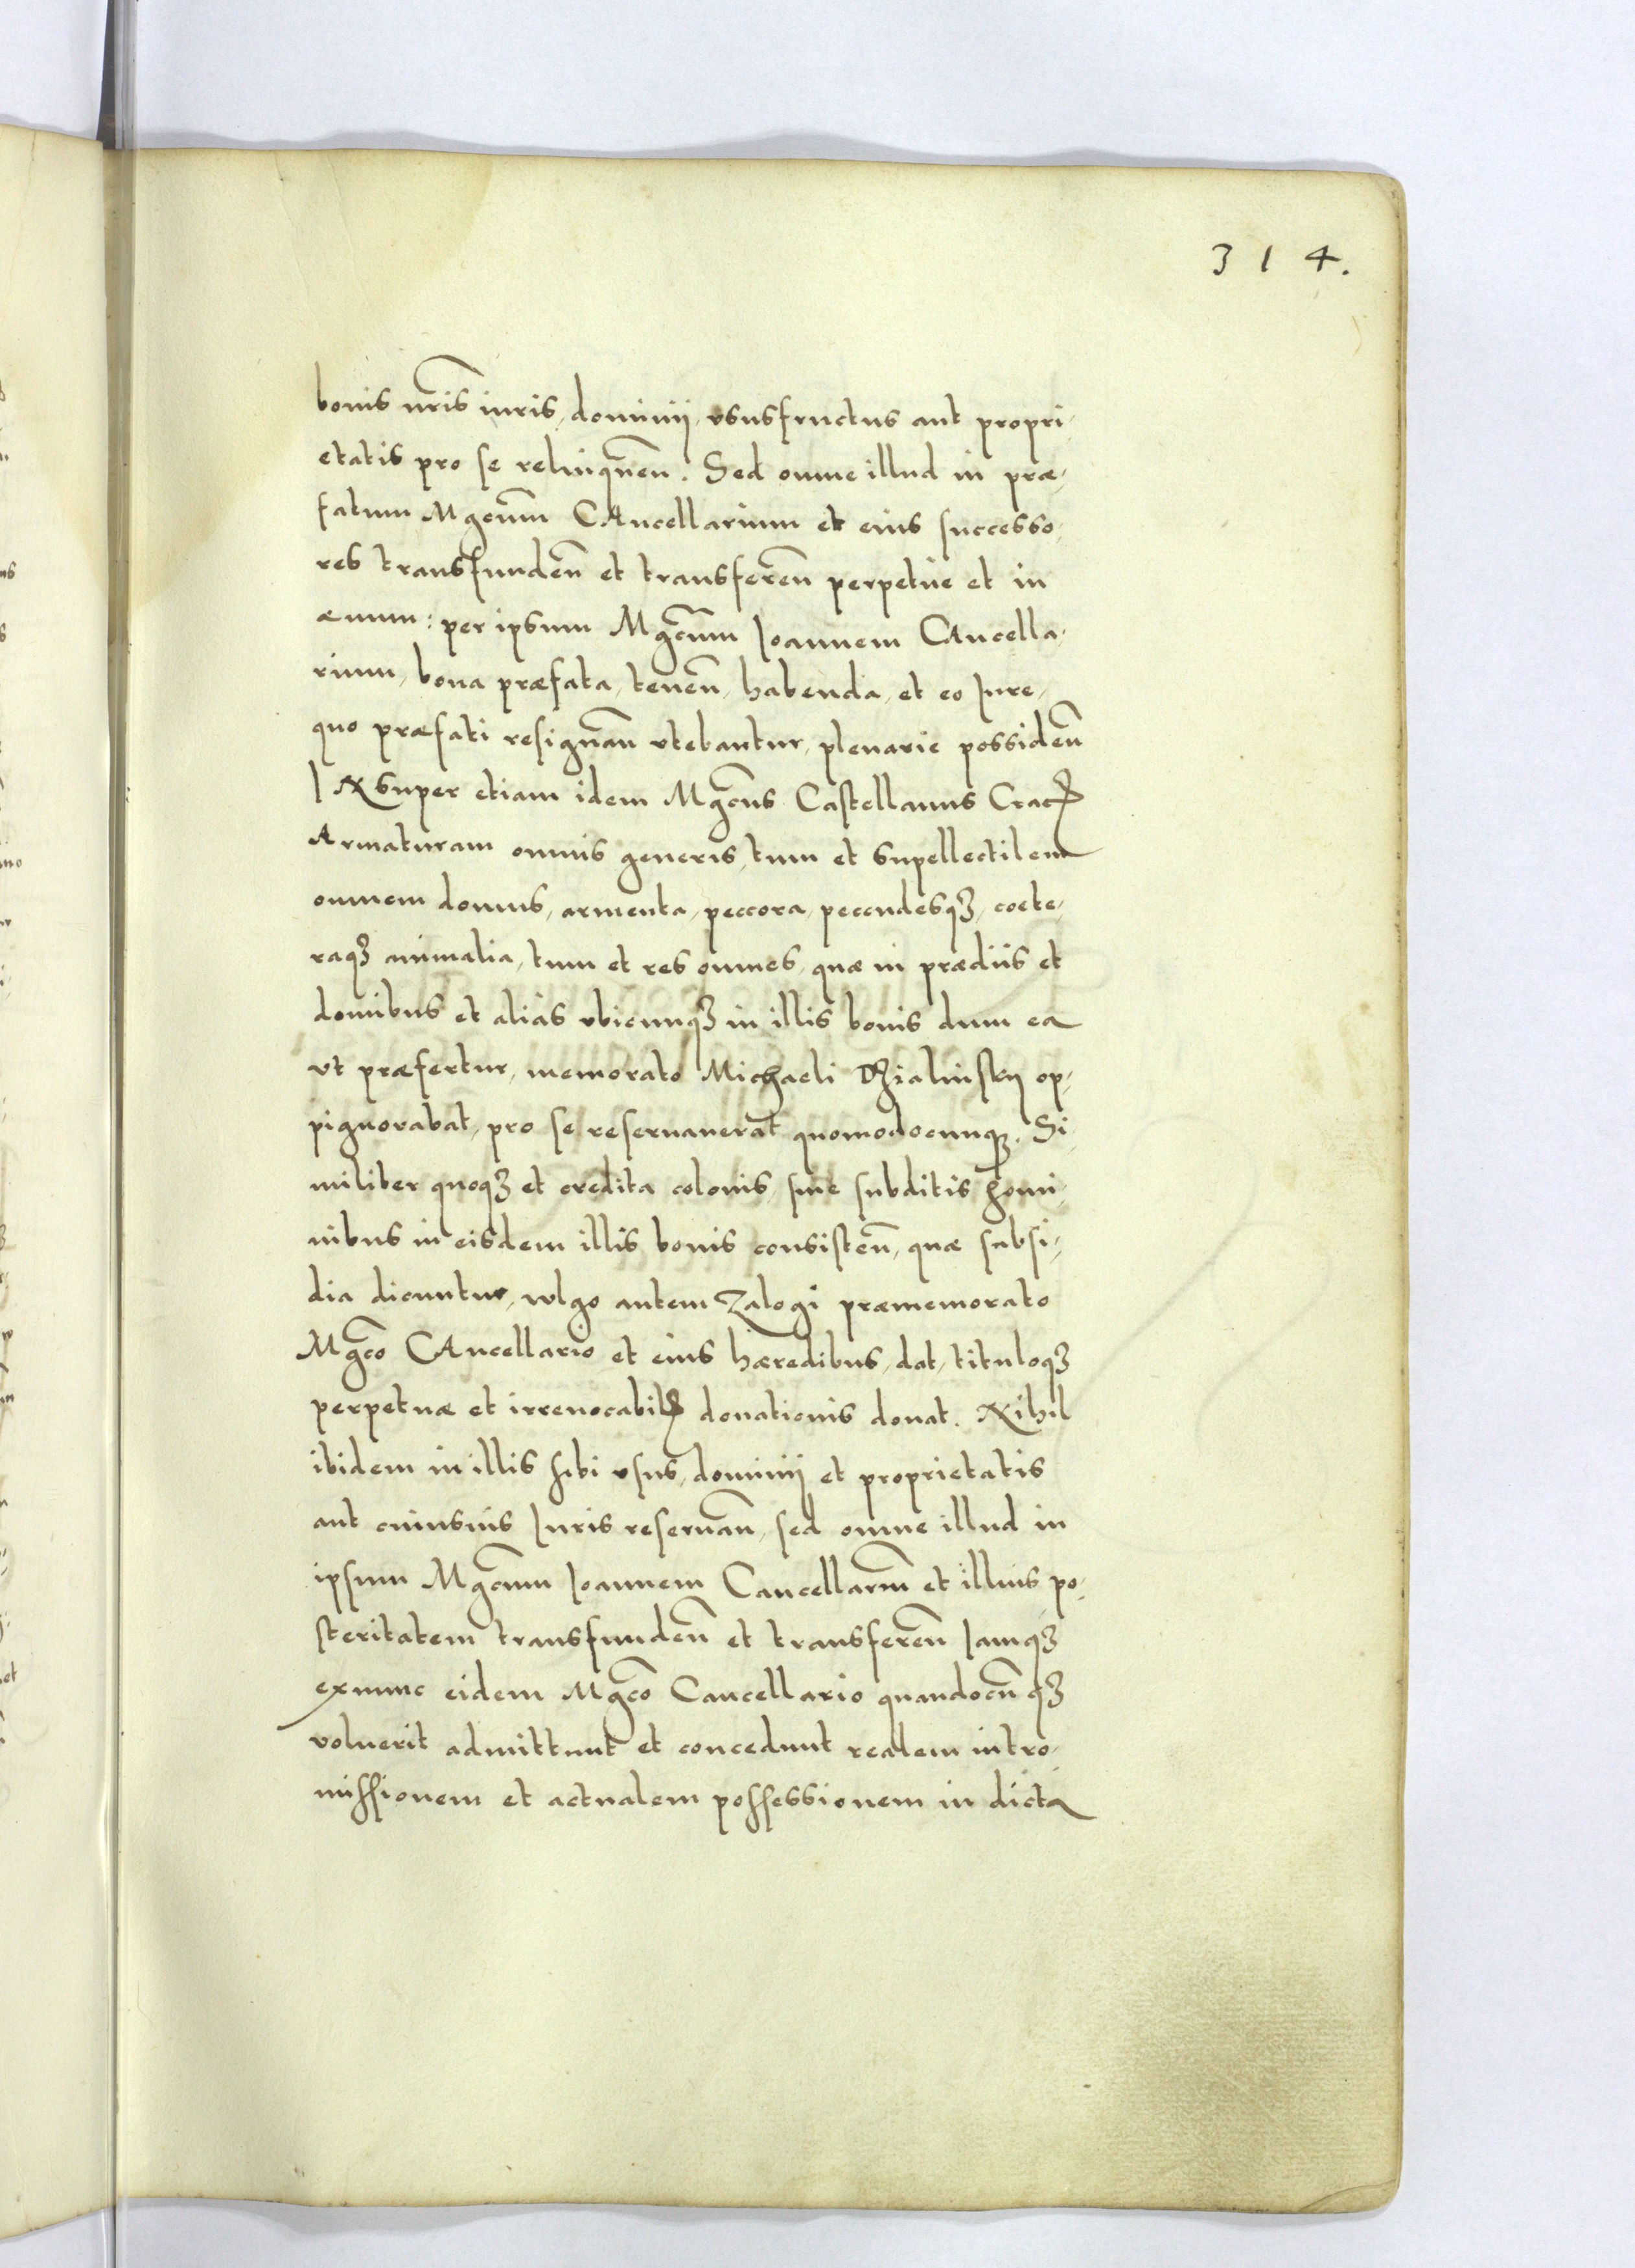 314.
bonis nr̃is iuris, dominij, vsusfructus aut propri,
etatis pro se relinquẽn. Sed omne illud in præ,
fatum Mgcũm CAncellarium et eius successo,
res transfundẽn et transferẽn perpetue et in
æuum: per ipsum Mgcũm Ioannem CAncella,
rium, bona præfata, tenẽn, habenda, et eo Iure,
quo præfati resignãn vtebantur, plenarie possidẽn
INsuper etiam idem Mgc̃us Castellanus Cracꝭ
Armaturam omnis generis, tum et supellectilem
omnem domus, armenta, peccora, pecudesqꝫ, coete,
raqꝫ animalia, tum et res omnes, quæ in prædiis et
domibus et aliàs vbicunqꝫ in illis bonis dum ea
vt præfertur, memorato Michaeli Dzialinsky op,
pignorabat, pro se reseruauerat quomodocunqꝫ. Si
militer quoqꝫ et credita colonis siue subditis homi,
nibus in eisdem illis bonis consistẽn, quæ subsi,
dia dicuntur, vulgo autem Zalogi præmemorato
Mgc̃o CAncellario et eius hæredibus, dat, tituloqꝫ
perpetuæ et irreuocabilꝭ donationis donat. Nihil
ibidem in illis sibi vsus, dominij et proprietatis
aut cuiusuis Iuris reseruãn, sed omne illud in
ipsum Mgcũm Ioannem Cancellariũm et illius po,
steritatem transfundẽn et transferẽn Iamqꝫ
exnunc eidem Mgc̃o Cancellario quandocũqꝫ
voluerit admittunt et concedunt realem intro,
missionem et actualem possessionem in dicta